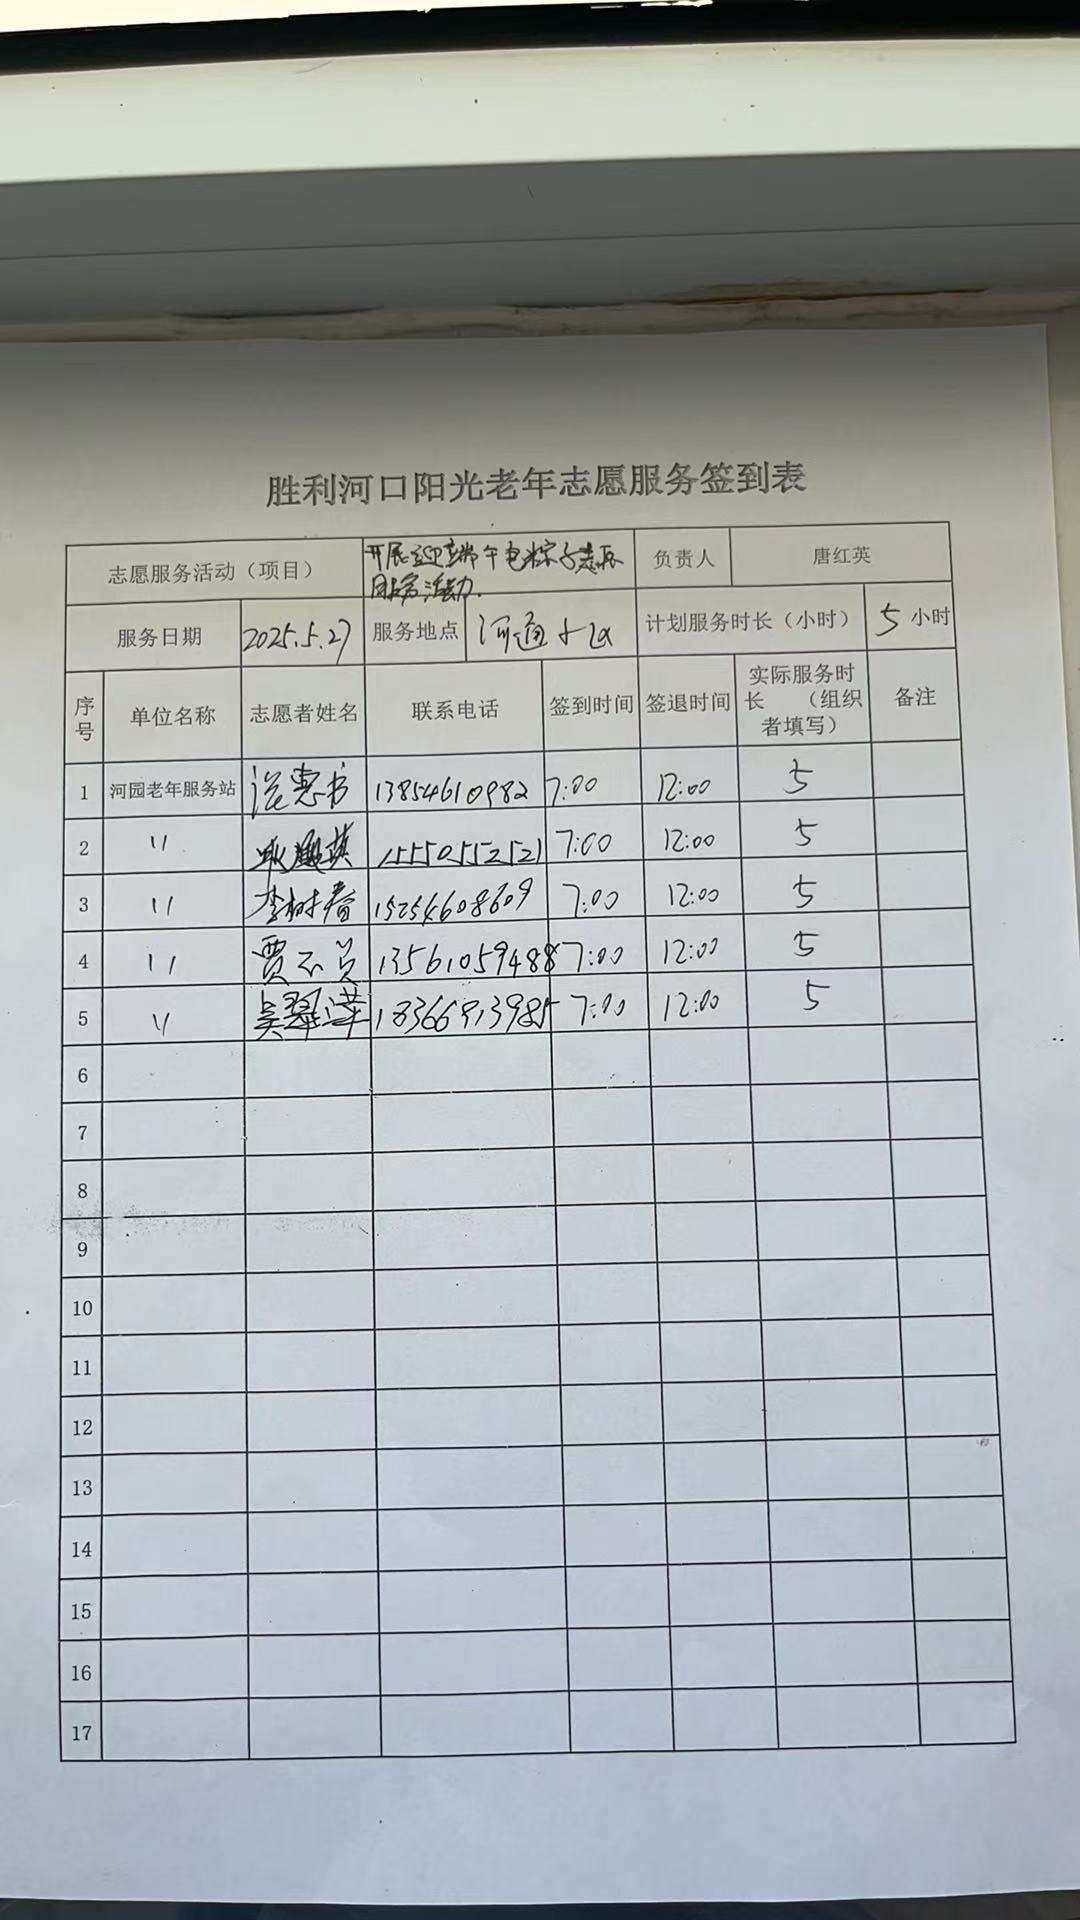 胜利河口阳光老年志愿服务签到表
志愿服务活动（项目） 开展迎端午包粽子志愿服务活动. 负责人 唐红英
服务日期 2025.5.27 服务地点 河通小区 计划服务时长（小时） 5 小时
序号 单位名称 志愿者姓名 联系电话 签到时间 签退时间 实际服务时长 （组织者填写） 备注
1 河园老年服务站 惠书 13854610982 7:00 12:00 5
2 〃 15550552521 7:00 12:00 5
3 〃 李树春 15254608609 7:00 12:00 5
4 〃 贾 13561059488 7:00 12:00 5
5 〃 吴翠萍 18366913985 7:00 12:00 5
6
7
8
9
10
11
12
13
14
15
16
17